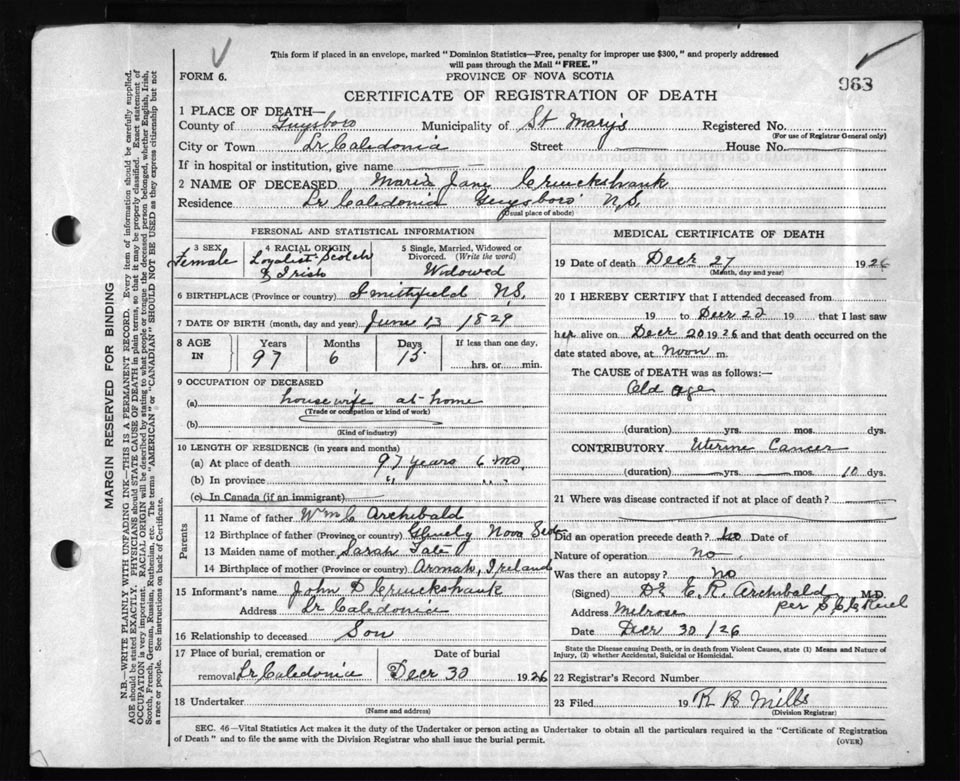 This form if placed in an envelope, marked "Dominion Statistics—Free, penalty for improper use $300," and properly addressed
will pass through the Mail "FREE."
FORM 6.
PROVINCE OF NOVA SCOTIA
963
CERTIFICATE OF REGISTRATION OF DEATH
1 PLACE OF DEATH—
County of Guysboro Municipality of St Mary's Registered No.
(For use of Registrar General only)
City or Town Lr Caledonia Street House No.
If in hospital or institution, give name
2 NAME OF DECEASED Maria Jane Cruickshank
Residence Lr Caledonia Guysboro N.S.
(Usual place of abode)
PERSONAL AND STATISTICAL INFORMATION
3 SEX 4 RACIAL ORIGIN 5 Single, Married, Widowed or
Divorced. (Write the word)
Female Loyalist-Scotch
& Irish Widowed
6 BIRTHPLACE (Province or country) Smithfield N.S.
7 DATE OF BIRTH (month, day and year) June 13 1829
8 AGE IN Years Months Days If less than one day,
97 6 15 hrs. or min.
9 OCCUPATION OF DECEASED
(a) housewife at home
(Trade or occupation or kind of work)
(b)
(Kind of industry)
10 LENGTH OF RESIDENCE (in years and months)
(a) At place of death 97 years 6 mo.
(b) In province " "
(c) In Canada (if an immigrant)
Parents
11 Name of father Wm C Archibald
12 Birthplace of father (Province or country) Nova Sco
13 Maiden name of mother Sarah
14 Birthplace of mother (Province or country) Armah, Ireland
15 Informant's name John D Cruickshank
Address Lr Caledonia
16 Relationship to deceased Son
17 Place of burial, cremation or Date of burial
removal Lr Caledonia Decr 30 1926
18 Undertaker
(Name and address)
MEDICAL CERTIFICATE OF DEATH
19 Date of death Decr 27 1926
(Month, day and year)
20 I HEREBY CERTIFY that I attended deceased from
19 to Decr 22 19 that I last saw
her alive on Decr 20 1926 and that death occurred on the
date stated above, at noon m.
The CAUSE of DEATH was as follows:—
Old age
(duration) yrs. mos. dys.
CONTRIBUTORY Uterine Cancer
(duration) yrs. mos. 10 dys.
21 Where was disease contracted if not at place of death?
Did an operation precede death? no Date of
Nature of operation No
Was there an autopsy? No
(Signed) Dr E. R. Archibald M.D.
Address Melrose per
Date Decr 30 /26
State the Disease causing Death, or in death from Violent Causes, state (1) Means and Nature of
Injury, (2) whether Accidental, Suicidal or Homicidal.
22 Registrar's Record Number
23 Filed 19 K B Mills
(Division Registrar)
SEC. 46—Vital Statistics Act makes it the duty of the Undertaker or person acting as Undertaker to obtain all the particulars required in the "Certificate of Registration
of Death" and to file the same with the Division Registrar who shall issue the burial permit.
(OVER)
MARGIN RESERVED FOR BINDING
N.B.—WRITE PLAINLY WITH UNFADING INK—THIS IS A PERMANENT RECORD. Every item of information should be carefully supplied.
AGE should be stated EXACTLY. PHYSICIANS should STATE CAUSE OF DEATH in plain terms, so that it may be properly classified. Exact statement of
OCCUPATION is very important. RACIAL ORIGIN will be described by stating to what people or tongue the deceased person belonged, whether English, Irish,
Scotch, French, German, Russian, Ruthenian, etc. The terms "AMERICAN" or "CANADIAN" SHOULD NOT BE USED as they express citizenship but not
a race or people. See instructions on back of Certificate.